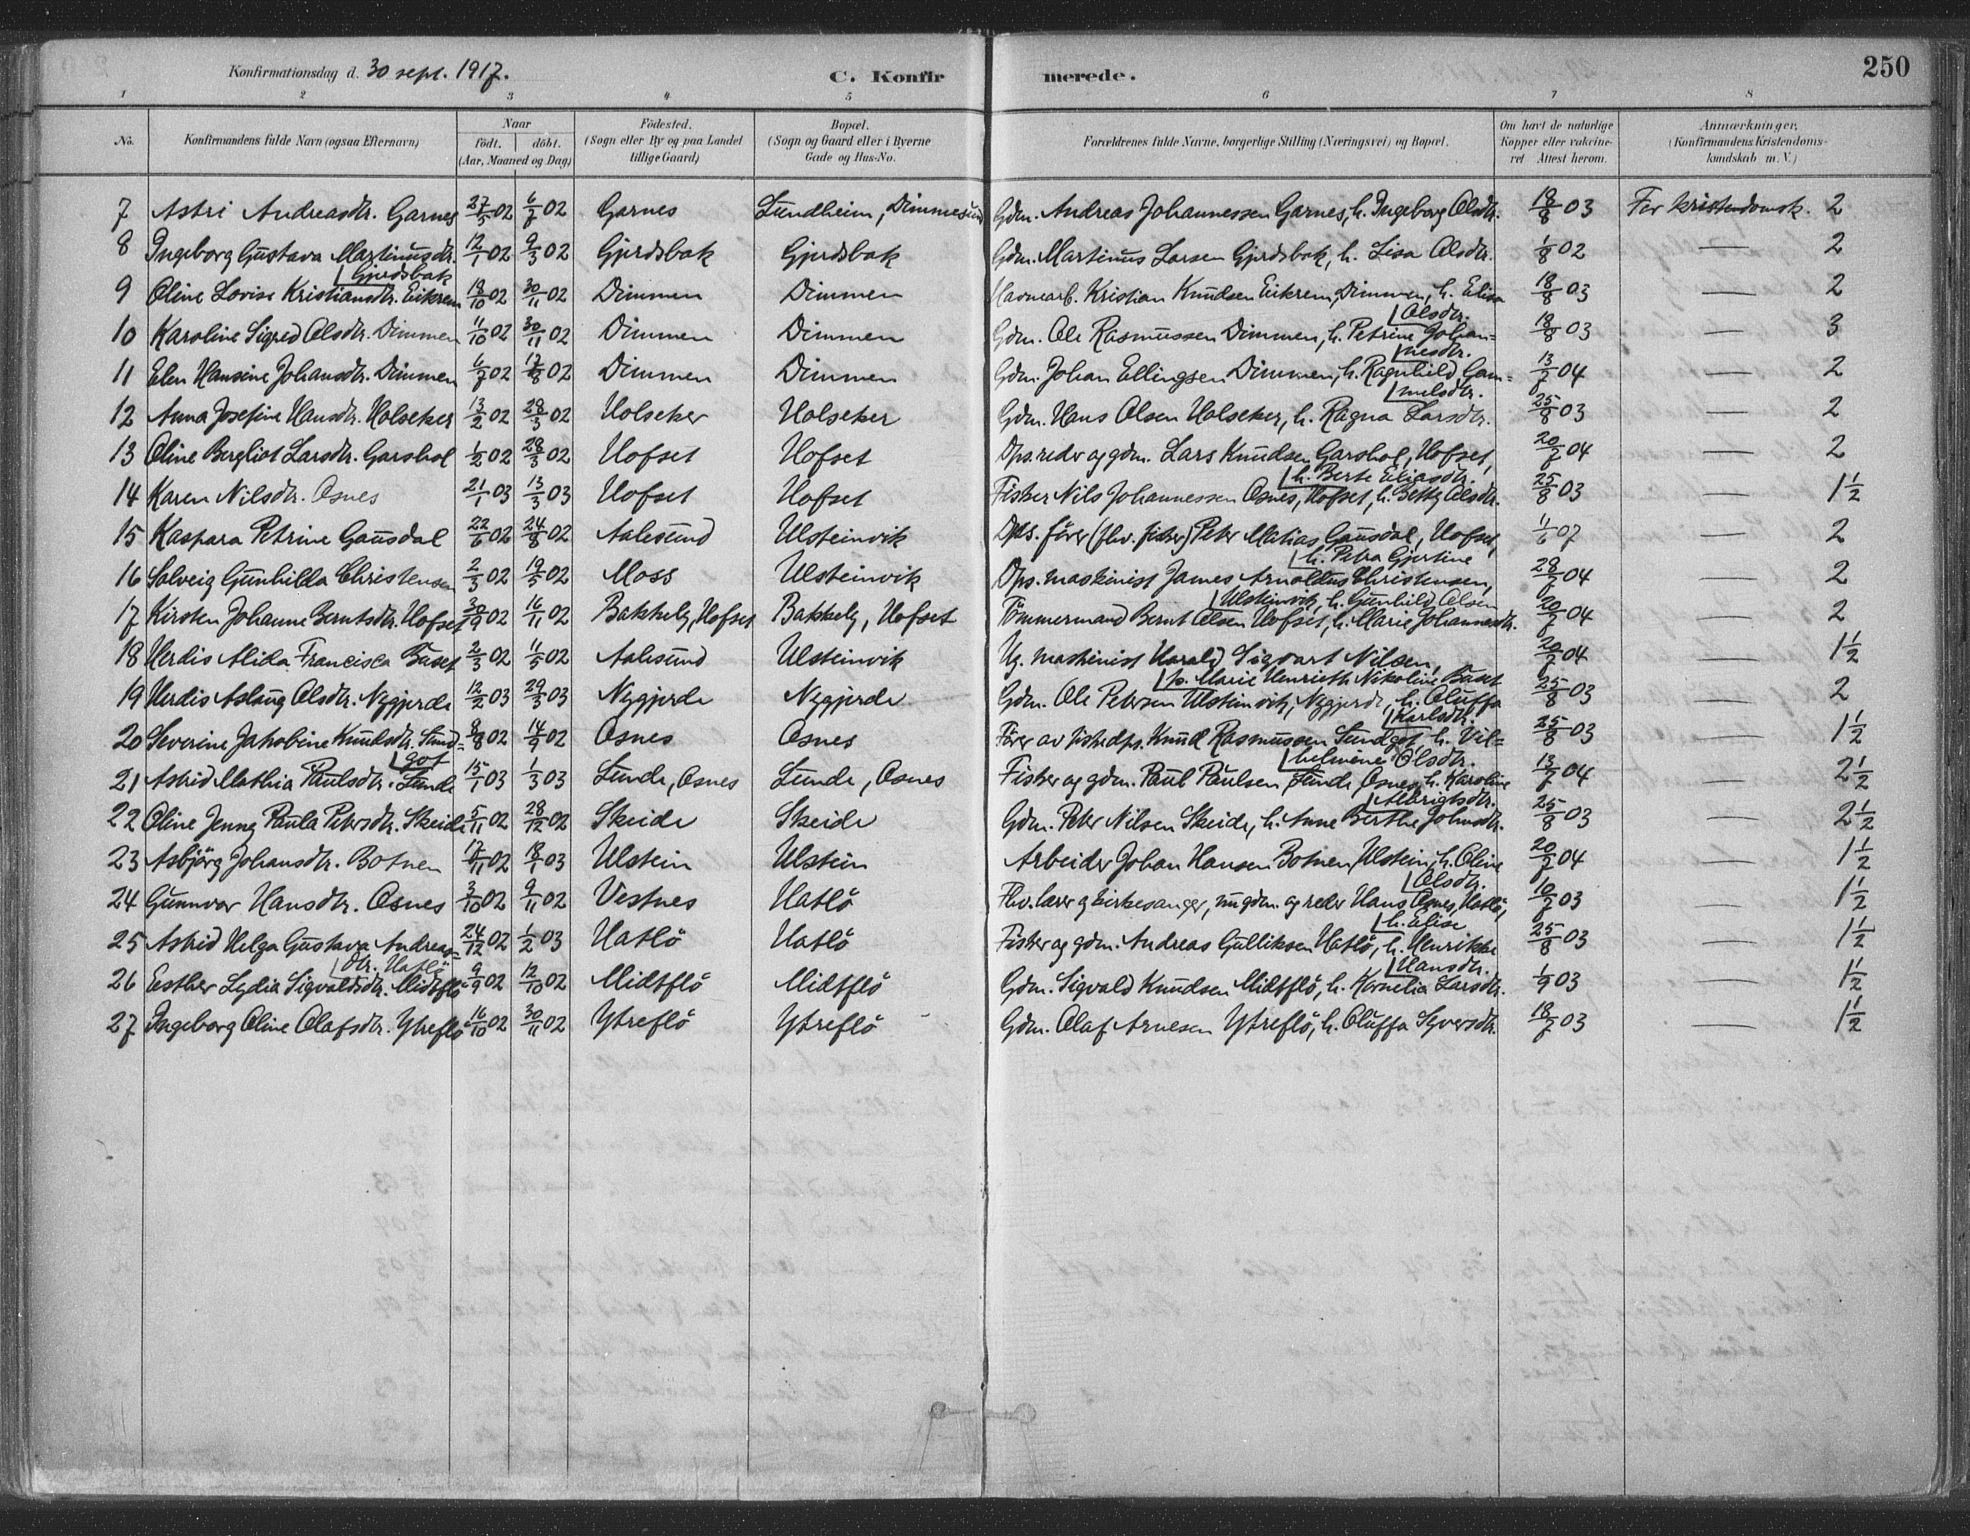 Konfirmationsdag d. 30 sept. 1917. C. Konfirmerede. 250
1 2 3 4 5 6 7 8
No. Konfirmandens fulde Navn (ogsaa Efternavn) Naar födt. döbt. (Aar, Maaned og Dag) Födested. (Sogn eller By og paa Landet tillige Gaard) Bopæl. (Sogn og Gaard eller i Byerne Gade og Hus-No. Forældrenes fulde Navne, borgerlige Stilling (Næringsvei) og Bopæl. Om havt de naturlige Kopper eller vakcineret Attest herom. Anmærkninger, (Konfirmandens Kristendomskundskab m. V.)
7 Astri Andreasdtr. Garnes 27/5 02 6/7 02 Garnes Sundheim, Dimmesund Gdm. Andreas Johannessen Garnes, h. Ingeborg Olsdtr. 18/8 03 For kristendomsk. 2
8 Ingeborg Gustava Martinusdtr. Gjerdsbak 12/1 02 9/3 02 Gjerdsbak Gjerdsbak Gdm. Martinus Larsen Gjerdsbak, h. Lisa Olsdtr. 1/8 02 — 2
9 Oline Lovise Kristiansdtr. Eikrem 18/10 02 30/11 02 Dimmen Dimmen Havnearb. Kristian Knudsen Eikrem, Dimmen, h. Elisa Olsdtr. 18/8 03 — 2
10 Karoline Sigred Olsdtr. Dimmen 11/10 02 30/11 02 Dimmen Dimmen Gdm. Ole Rasmussen Dimmen, h. Petrine Johannesdtr. 18/8 03 — 3
11 Elen Hansine Johansdtr. Dimmen 6/7 02 17/8 02 Dimmen Dimmen Gdm. Johan Ellingsen Dimmen, h. Ragnhild Gammelsdtr. 13/7 04 — 2
12 Anna Josefine Hansdtr. Holseker 13/2 02 28/3 02 Holseker Holseker Gdm. Hans Olsen Holseker, h. Ragna Larsdtr. 25/8 03 — 2
13 Oline Bergliot Larsdtr. Garshol 1/2 02 28/3 02 Hofset Hofset Dps.reder og gdm. Lars Knudsen Garshol, Hofset, h. Berte Eliasdtr. 20/7 04 — 2
14 Karen Nilsdtr. Osnes 21/1 03 13/3 03 Hofset Hofset Fisker Nils Johannessen Osnes, Hofset, h. Betty Olsdtr. 25/8 03 — 1½
15 Kaspara Petrine Gausdal 22/6 02 24/8 02 Aalesund Ulsteinvik Dps. förer (fhv. fisker) Peter Matias Gausdal, Hofset, h. Petra Gjertine 1/6 07 — 2
16 Solveig Gunhilda Christensen 2/3 02 19/5 02 Moss Ulsteinvik Dps. maskinist James Arnoldus Christensen, Ulsteinvik, h. Gunhild Olsen 28/7 04 — 2
17 Kirsten Johanne Berntsdtr. Hofset 30/9 02 16/11 02 Bakkely, Hofset Bakkely, Hofset Tömmermand Bernt Olsen Hofset, h. Marie Johannesdtr. 20/7 04 — 2
18 Herdis Alida Francisca Baset 2/3 02 11/5 02 Aalesund Ulsteinvik Ug. maskinist Harald Sigvart Nilsen, p. Marie Henriette Nikoline Baset 20/7 04 — 1½
19 Herdis Aslaug Olsdtr. Nygjerde 12/2 03 29/3 03 Nygjerde Nygjerde Gdm. Ole Petersen Ulsteinvik, Nygjerde, h. Oluffa Karlsdtr. 25/8 03 — 2
20 Severine Jakobine Knudsdtr. Sundgot 8/8 02 14/9 02 Osnes Osnes Förer av fiskedps. Knud Rasmussen Sundgot, h. Vilhelmine Olsdtr. 25/8 03 — 1½
21 Astrid Mathia Paulsdtr. Sunde 15/1 03 1/3 03 Sunde, Osnes Sunde, Osnes Fisker og gdm. Paul Paulsen Sunde, Osnes, h. Karoline Albrigtsdtr. 13/7 04 — 2½
22 Oline Jenny Paula Petersdtr. Skeide 5/11 02 28/12 02 Skeide Skeide Gdm. Peter Nilsen Skeide, h. Anne Berthe Johnsdtr. 25/8 03 — 2½
23 Asbjörg Johansdtr. Botnen 17/11 02 18/1 03 Ulstein Ulstein Arbeider Johan Hansen Botnen, Ulstein, h. Oline Olsdtr. 20/7 04 — 1½
24 Gunnvor Hansdtr. Osnes 3/10 02 9/11 02 Vestnes Hatlö Fhv. lærer og kirkesanger, nu gdm. og reder Hans Osnes, Hatlö, h. Elise 10/7 03 — 1½
25 Astrid Helga Gustava Andreasdtr. Hatlö 24/12 02 1/2 03 Hatlö Hatlö Fisker og gdm. Andreas Gulliksen Hatlö, h. Henrikke Hansdtr. 25/8 03 — 1½
26 Esther Lydia Sigvaldsdtr. Midtflö 9/9 02 12/10 02 Midtflö Midtflö Gdm. Sigvald Knudsen Midtflö, h. Kornelia Larsdtr. 1/9 03 — 1½
27 Ingeborg Oline Olafsdtr. Ytreflö 16/10 02 30/11 02 Ytreflö Ytreflö Gdm. Olaf Arnesen Ytreflö, h. Oluffa Syversdtr. 18/7 03 — 1½